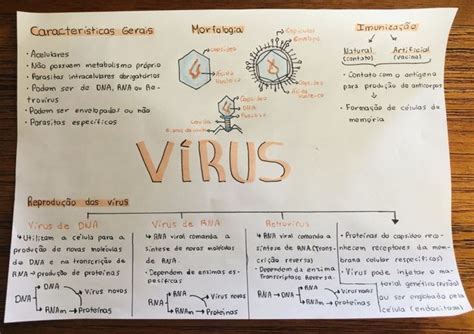 Características Gerais
• Acelulares
• Não possuem metabolismo próprio
• Parasitas intracelulares obrigatórios
• Podem ser de DNA, RNA ou Re-
trovírus
• Podem ser envelopados ou não
• Parasitas específicos
Morfologia
capsídeo
Ácido
nucleico
Capsídeo
Envelope
Ácido
nucleico
Capsídeo
DNA
Cauda
Imunização
Natural
(contato)
Artificial
(vacina)
• Contato com o antígeno
para produção de anticorpos
• Formação de células de
memória
VÍRUS
Reprodução dos vírus
Vírus de DNA
• Utilizam a célula para a
produção de novas moléculas
de DNA e na transcrição de
RNA → produção de proteínas
DNA
DNA → Vírus novos
RNAm → Proteínas
Vírus de RNA
• RNA viral comanda a
síntese de novas moléculas
de RNA
• Dependem de enzimas es-
pecíficas
RNA
RNA → Vírus novos
RNAm → Proteínas
Retrovírus
• RNA viral comanda a
síntese de RNA (trans
crição reversa)
• Dependem da enzima
Transcriptase Reversa
RNA
Vírus novos
RNAm → Proteínas
• Proteínas do capsídeo reco-
nhecem receptores da mem-
brana celular (específicos)
• Vírus pode injetar o ma-
terial genético
ou ser englobado pela
célula (endocitose)